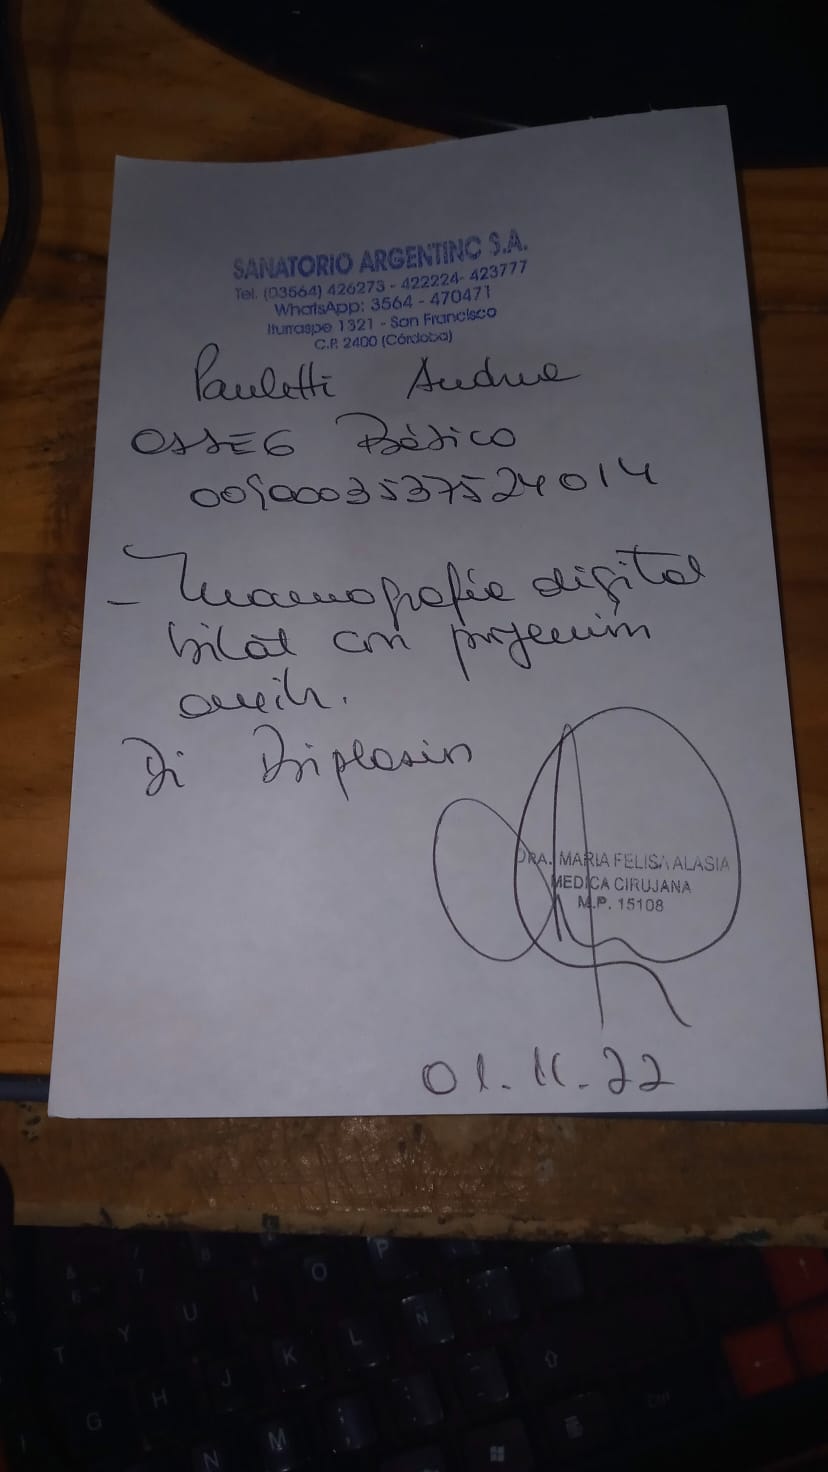 SANATORIO ARGENTINO S.A.
Tel. (03564) 426273 - 422224- 423777
WhatsApp: 3564 - 470471
Iturraspe 1321 - San Francisco
C.P. 2400 (Córdoba)
Pauletti Andrea
OSSEG Básico
0090003537524014
- Mamografía digital
bilat con proyección
axilr.
D:
DRA. MARIA FELISA ALASIA
MEDICA CIRUJANA
M.P. 15108
01.11.22
T Y U I O P
G H J K L Ñ
N M